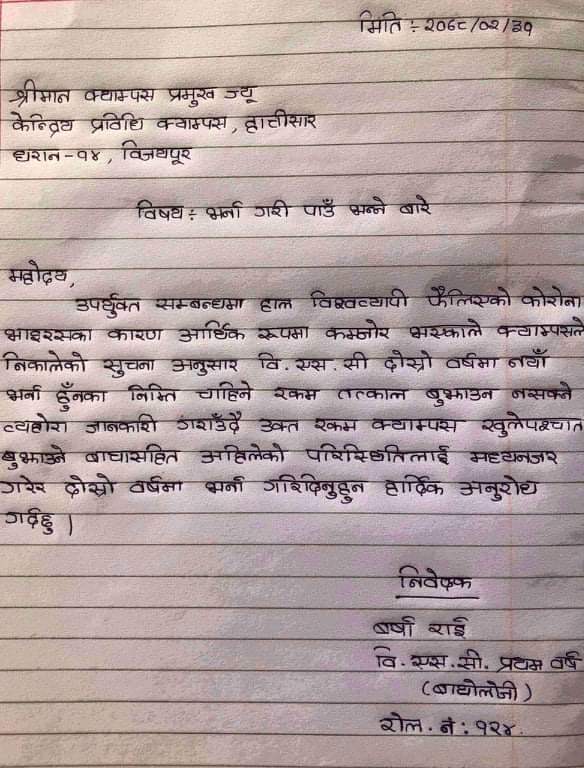 मिति : २०७८/०२/३१
श्रीमान क्याम्पस प्रमुख ज्यू
केन्द्रिय प्रविधि क्याम्पस, हात्तीसार
धरान-१४, विजयपूर
विषय : भर्ना गरी पाउँ भन्ने बारे
महोदय,
उपर्युक्त सम्बन्धमा हाल विश्वव्यापी फैलिएको कोरोना
भाइरसका कारण आर्थिक रुपमा कमजोर भएकाले क्याम्पसले
निकालेको सुचना अनुसार वि. एस. सी दोस्रो वर्षमा नयाँ
भर्ना हुँनका निम्ति चाहिने रकम तत्काल बुझाउन नसक्ने
व्यहोरा जानकारी गराउँदै उक्त रकम क्याम्पस खुलेपश्चात
बुझाउने बाचासहित अहिलेको परिस्थितिलाई मध्यनजर
गरेर दोस्रो वर्षमा भर्ना गरिदिनुहुन हार्दिक अनुरोध
गर्दछु |
निवेदक
बर्षा राई
वि. एस. सी. प्रथम वर्ष
(बायोलोजी)
रोल. नं : १२४